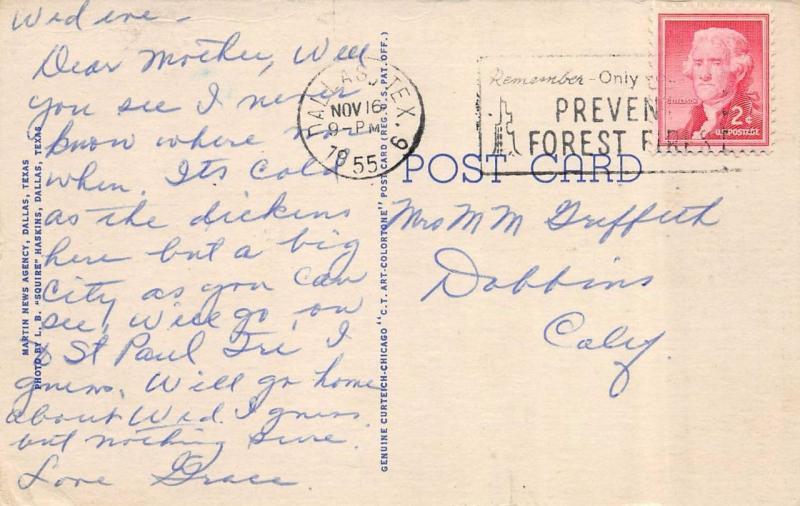 Wed eve -
Dear Mother, Well
you see I never
know where nor
when. Its cold
as the dickens
here but a big
City as you can
see, Will go on
to St Paul Fri I
guess. Will go home
about Wed. I guess
but nothing sure.
Love Grace
MARTIN NEWS AGENCY, DALLAS, TEXAS
PHOTO BY L. B. "SQUIRE" HASKINS, DALLAS, TEXAS
GENUINE CURTEICH-CHICAGO "C.T. ART-COLORTONE" POST CARD (REG. U.S. PAT. OFF.)
DALLAS, TEX.
NOV 16
9-PM
1955
6
Remember - Only
PREVENT
FOREST FIRES!
JEFFERSON
2¢
U.S. POSTAGE
POST CARD
Mrs M M Griffeth
Dobbins
Calif.